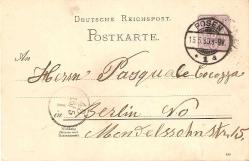 DEUTSCHE REICHSPOST.
POSTKARTE.
POSEN
An
Herrn Pasquale Cocozza
in Berlin No
Mendelssohnstr. 15